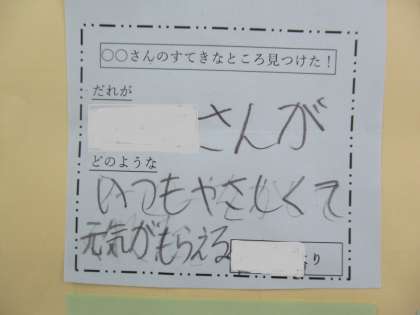 ○○さんのすてきなところ見つけた！
だれが
さんが
どのような
いつもやさしくて
元気がもらえる
より